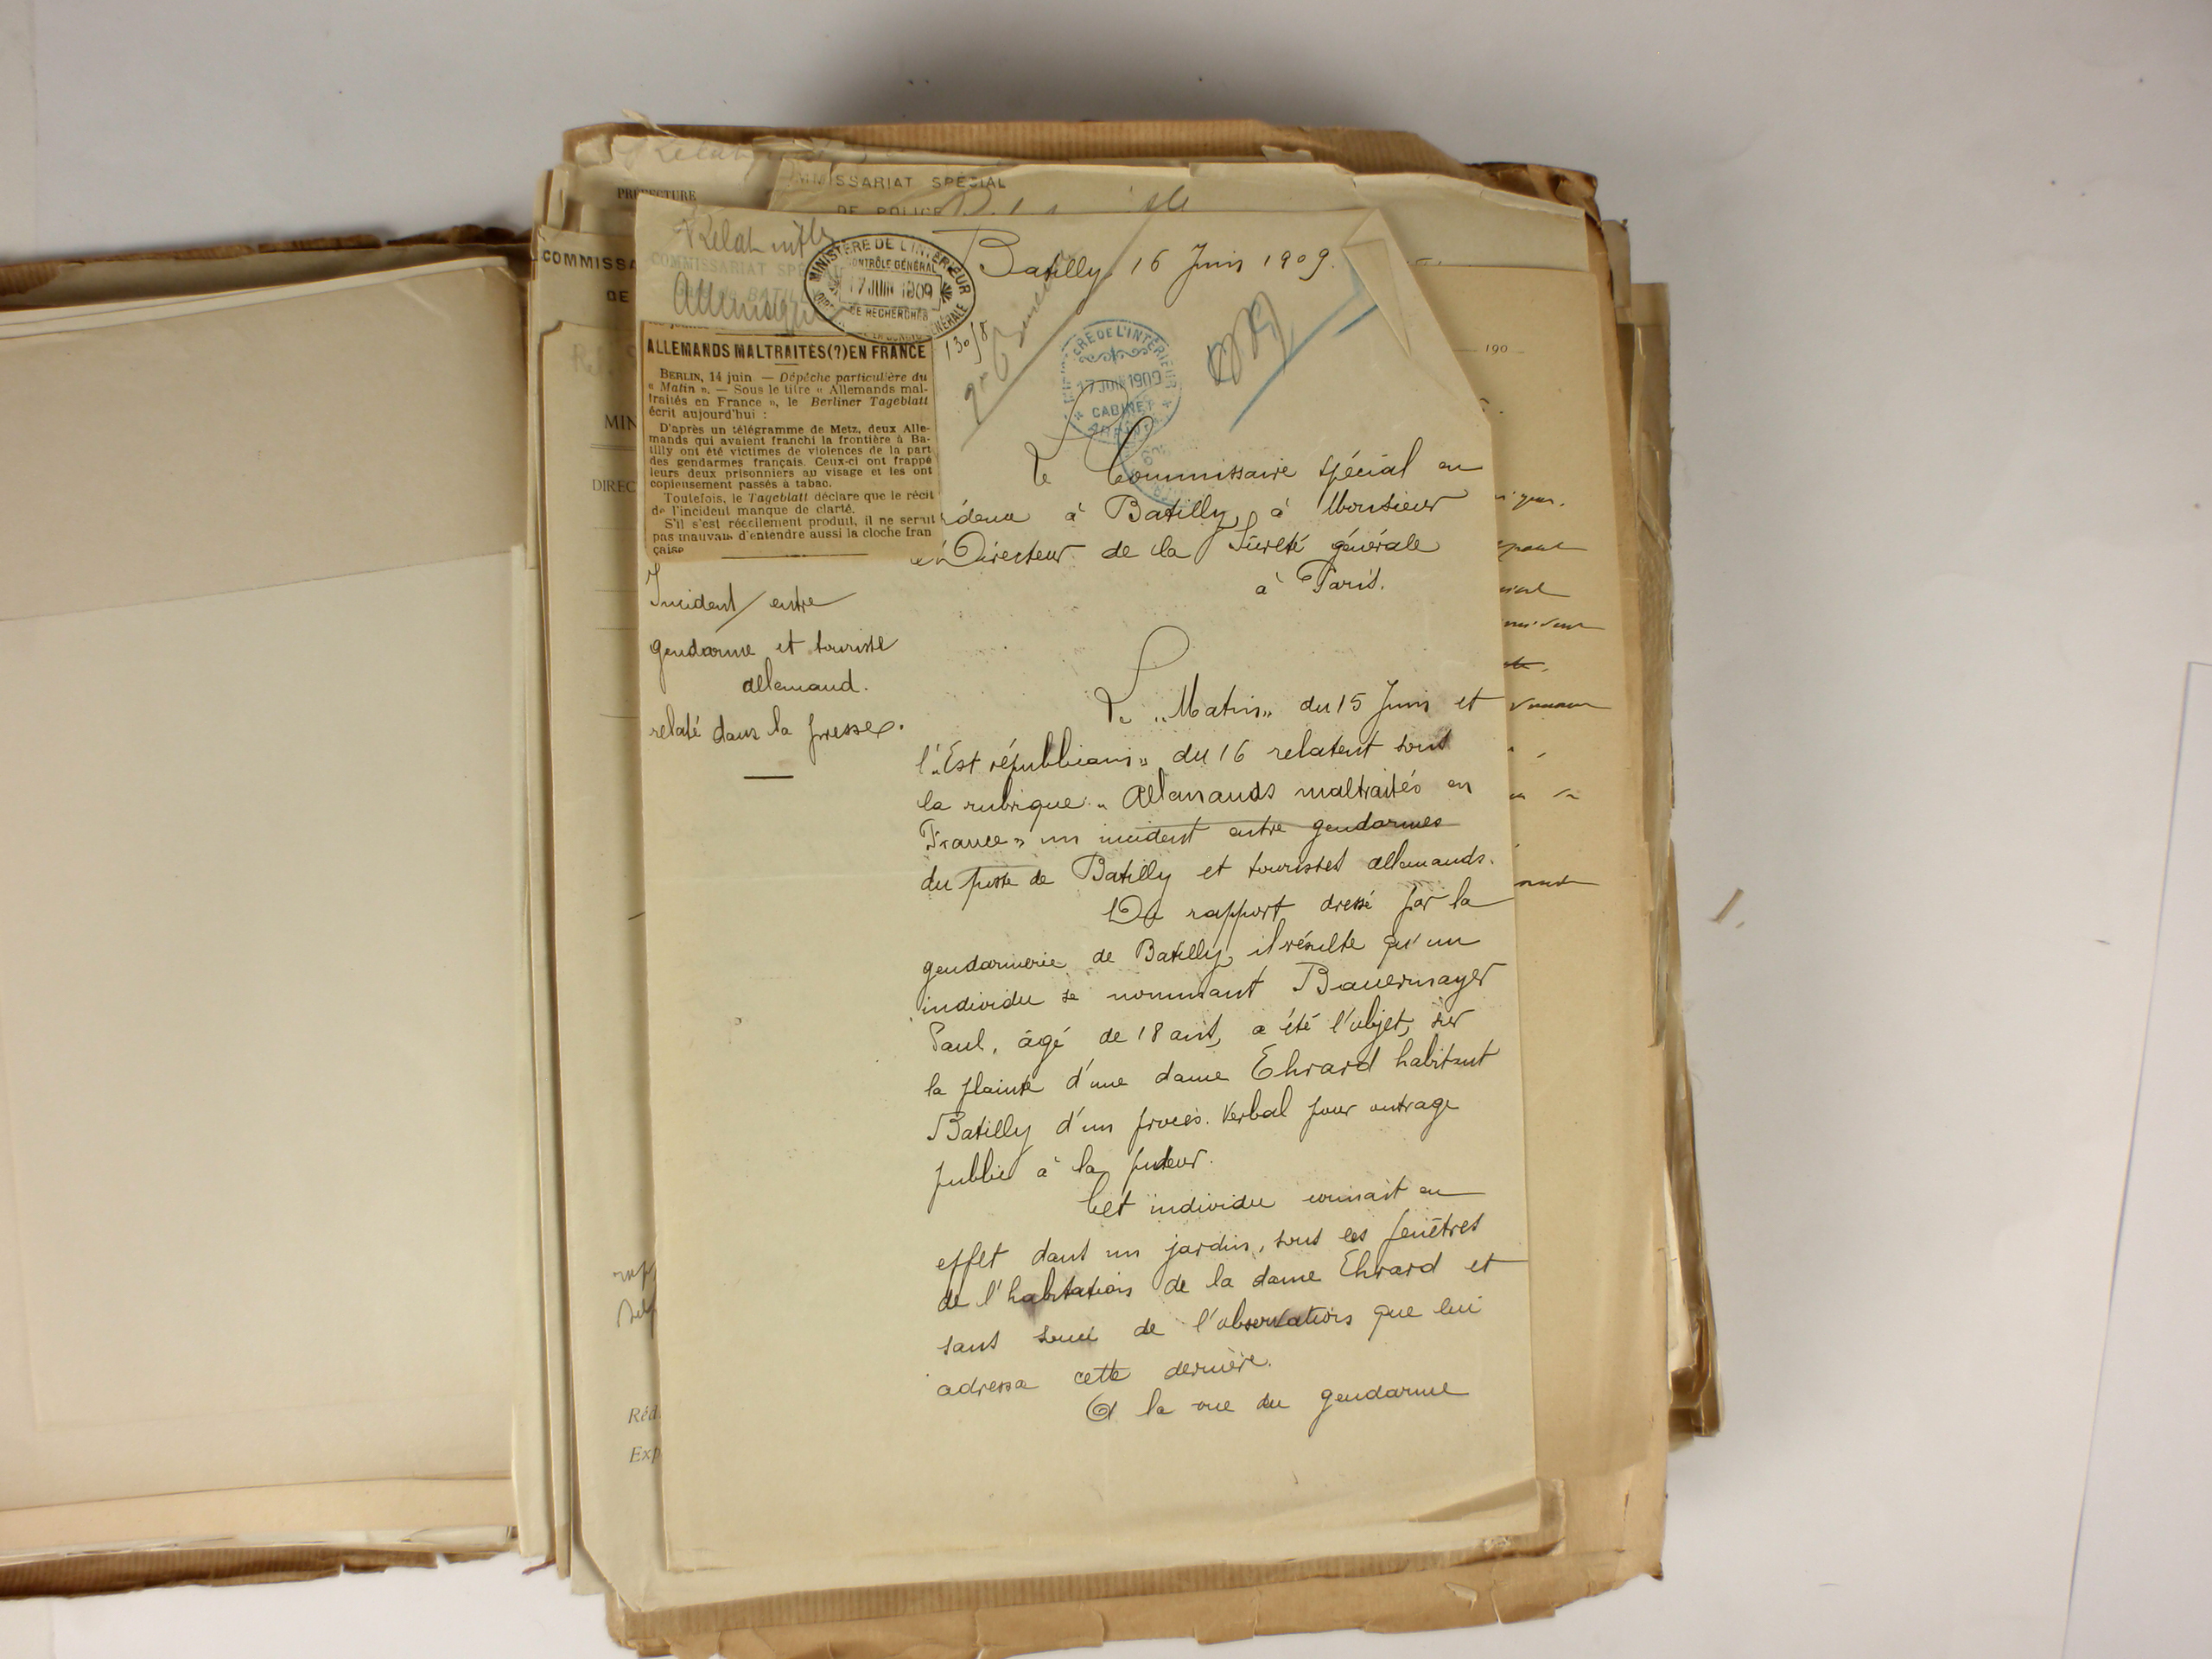 PRÉFECTURE
COMMISSARIAT SPÉCIAL
DE POLICE
COMMISSA
DE
Relat
Allemagne
COMMISSARIAT SPÉCIAL
de BATILLY
MINISTÈRE DE L'INTÉRIEUR
CONTRÔLE GÉNÉRAL
17 JUIN 1909
DE RECHERCHES
GÉNÉRALE
Batilly, 16 Juin 1909.
MINISTÈRE DE L'INTÉRIEUR
17 JUIN 1909
CABINET
190
MIN
DIREC
ALLEMANDS MALTRAITÉS (?) EN FRANCE
BERLIN, 14 juin — Dépêche particulière du
« Matin ». — Sous le titre « Allemands mal-
traités en France », le Berliner Tageblatt
écrit aujourd'hui :
D'après un télégramme de Metz, deux Alle-
mands qui avaient franchi la frontière à Ba-
tilly ont été victimes de violences de la part
des gendarmes français. Ceux-ci ont frappé
leurs deux prisonniers au visage et les ont
copieusement passés à tabac.
Toutefois, le Tageblatt déclare que le récit
de l'incident manque de clarté.
S'il s'est réellement produit, il ne serait
pas mauvais d'entendre aussi la cloche fran
çaise
Le Commissaire spécial en
à Batilly, à Monsieur
Directeur de la Sûreté générale
à Paris.
Incident entre
gendarme et touriste
allemand.
relaté dans la presse.
Le "Matin" du 15 Juin et
l'"Est républicain" du 16 relatent sous
la rubrique "Allemands maltraités en
France" un incident entre gendarmes
du poste de Batilly et touristes allemands.
Du rapport dressé par la
gendarmerie de Batilly, il résulte qu'un
individu se nommant Bauermayer
Paul, âgé de 18 ans, a été l'objet, sur
la plainte d'une dame Ehrard habitant
Batilly d'un procès-verbal pour outrage
public à la pudeur.
Cet individu urinait en
effet dans un jardin, sous les fenêtres
de l'habitation de la dame Ehrard et
sans souci de l'observation que lui
adressa cette dernière.
A la vue du gendarme
Réd
Exp